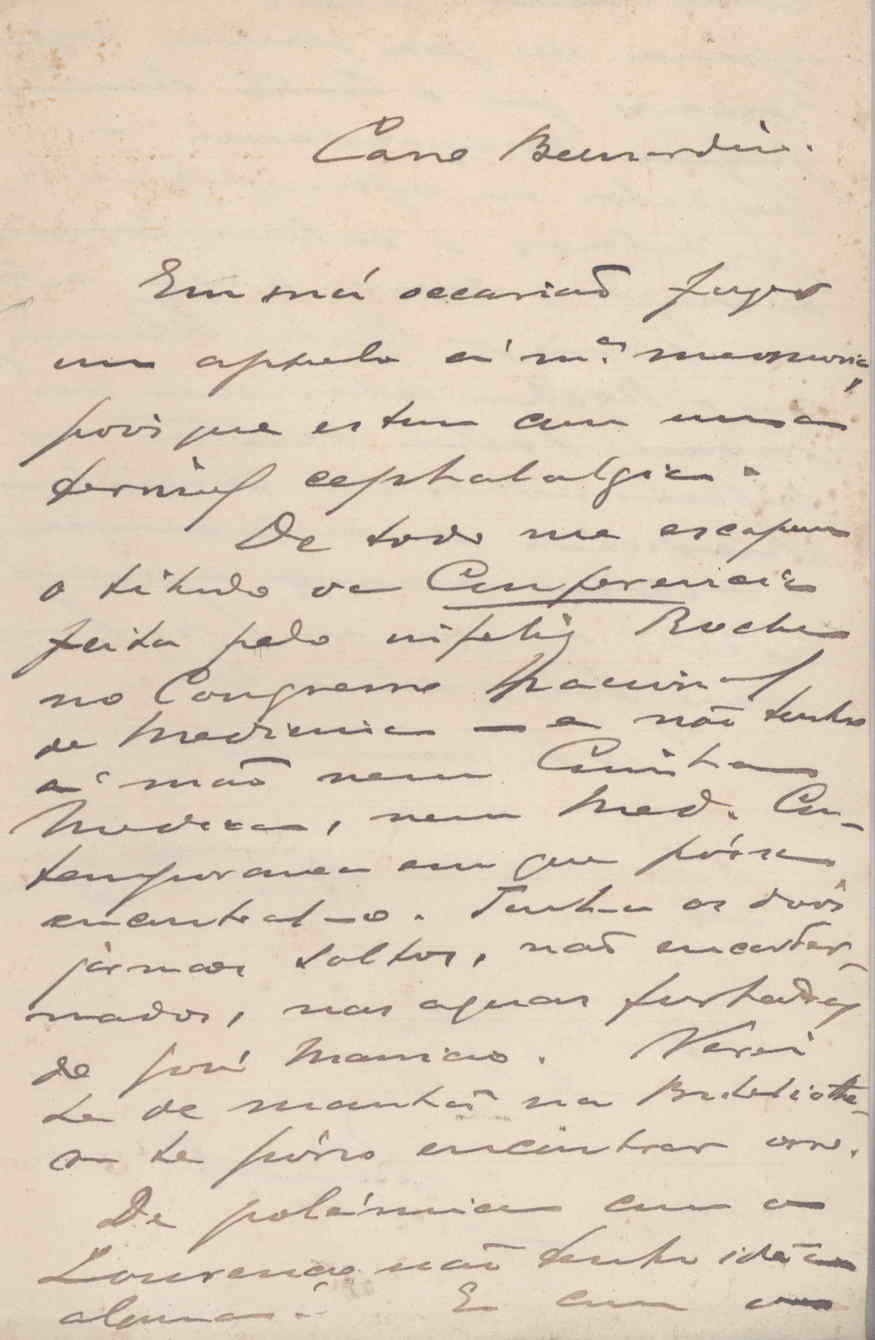 Caro Bernardino.
Em má occasião fazes
um appello á m.ª memoria,
pois que estou com uma
terrivel cephalalgia.
De todo me escapou
o titulo da Conferencia
feita pelo infeliz Rocha
no Congresso Nacional
de Medicina — e não tenho
á mão nem Coimbra
Medica, nem Med. Con-
temporanea em que possa
encontral-o. Tenho os dois
jornaes soltos, não encader-
nados, nas aguas furtadas
de José Mauricio. Verei
se de manhã na Bibliothe-
ca te posso encontrar isso.
De polémica com o
Lourenço não tenho idêa
alguma. E com